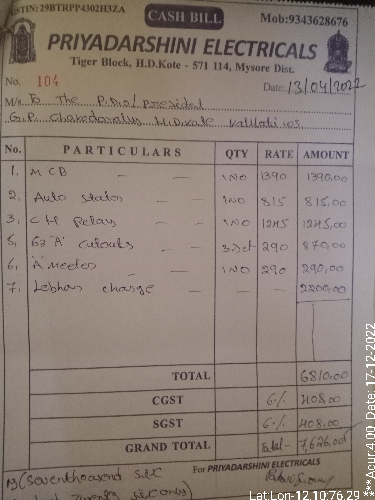 GSTIN: 29BTRPP4302H3ZA
CASH BILL
Mob:9343628676
PRIYADARSHINI ELECTRICALS
Tiger Block, H.D.Kote - 571 114, Mysore Dist.
No. 104 Date: 13/04/2022
M/s To The P.D.O/president
G.P.
No. PARTICULARS QTY RATE AMOUNT
1. MCB — — 1NO 1390 1390.00
2. Auto — — 1NO 815 815.00
3. CH Relay — — 1NO 1245 1245.00
5. 63 "A" cutouts — 3 Set 290 870.00
6. "A" Meeter — — 1NO 290 290.00
7. Lebhar charge — — 2200.00
TOTAL 6810.00
CGST 6% 408.00
SGST 6% 408.00
GRAND TOTAL Total- 7,626.00
(Seventhousand six
For PRIYADARSHINI ELECTRICALS
Lat.Lon-12.10;76.29 ***Acur:4.00 Date: 17-12-2022